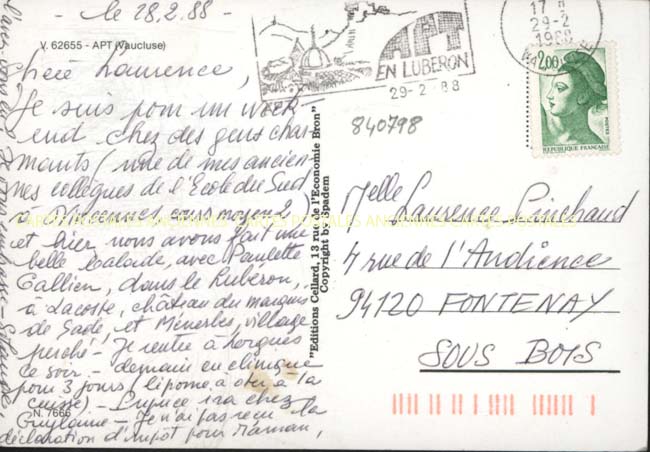 le 28.2.88 -
V. 62655 - APT (Vaucluse)
Chère Laurence,
Je suis pour un week
end chez des gens char-
mants (une de mes ancien-
nes collègues de l'Ecole du Sud
à Vincennes,
et hier nous avons fait une
belle balade, avec Paulette
Gallien, dans le Lubéron,
à Lacoste, château du marquis
de Sade, et Ménerbes, village
perché - Je rentre à Lorgues
ce soir - demain en clinique
pour 3 jours (lipome à ôter à la
cuisse) - ira chez
Guylaine - Je n'ai pas reçu la
déclaration d'impôt pour Maman,
N. 7666
"Editions Cellard, 13 rue de l'Economie Bron"
Copyright by Spadem
APT
EN LUBERON
29-2 88
17 H
29-2
1988
2,00
REPUBLIQUE FRANÇAISE
POSTES
840798
Melle Laurence
4 rue de l'Audience
94120 FONTENAY
SOUS BOIS
CARTES POSTALES ANCIENNES CARTES POSTALES ANCIENNES CARTES POSTALES